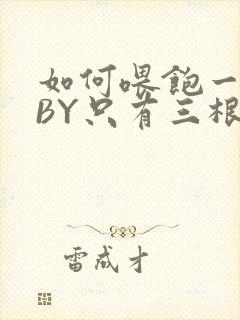 如何喂飽一
BY只有三根
雷成才